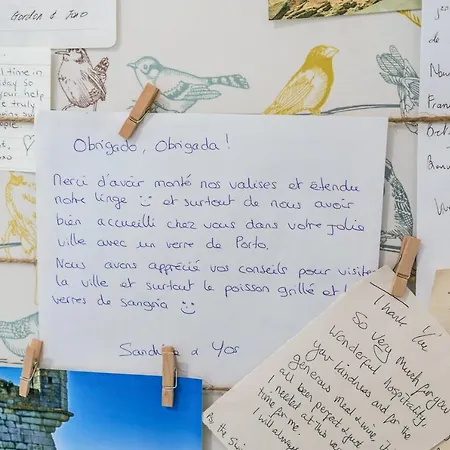 Gordon & Juno
time in
day so
your help
Obrigado, Obrigada !
Merci d'avoir monté nos valises et étendu
notre linge et surtout de nous avoir
bien accueilli chez vous dans votre jolie
ville avec un verre de Porto.
Nous avons apprécié vos conseils pour visiter
la ville et surtout le poisson grillé et
verres de sangria
& Yos
Thank You
So very much for your
wonderful hospitality,
your kindness and for the
generous meal & wine,
been perfect & just
needed at this
time for me.
I will always
de
Fran